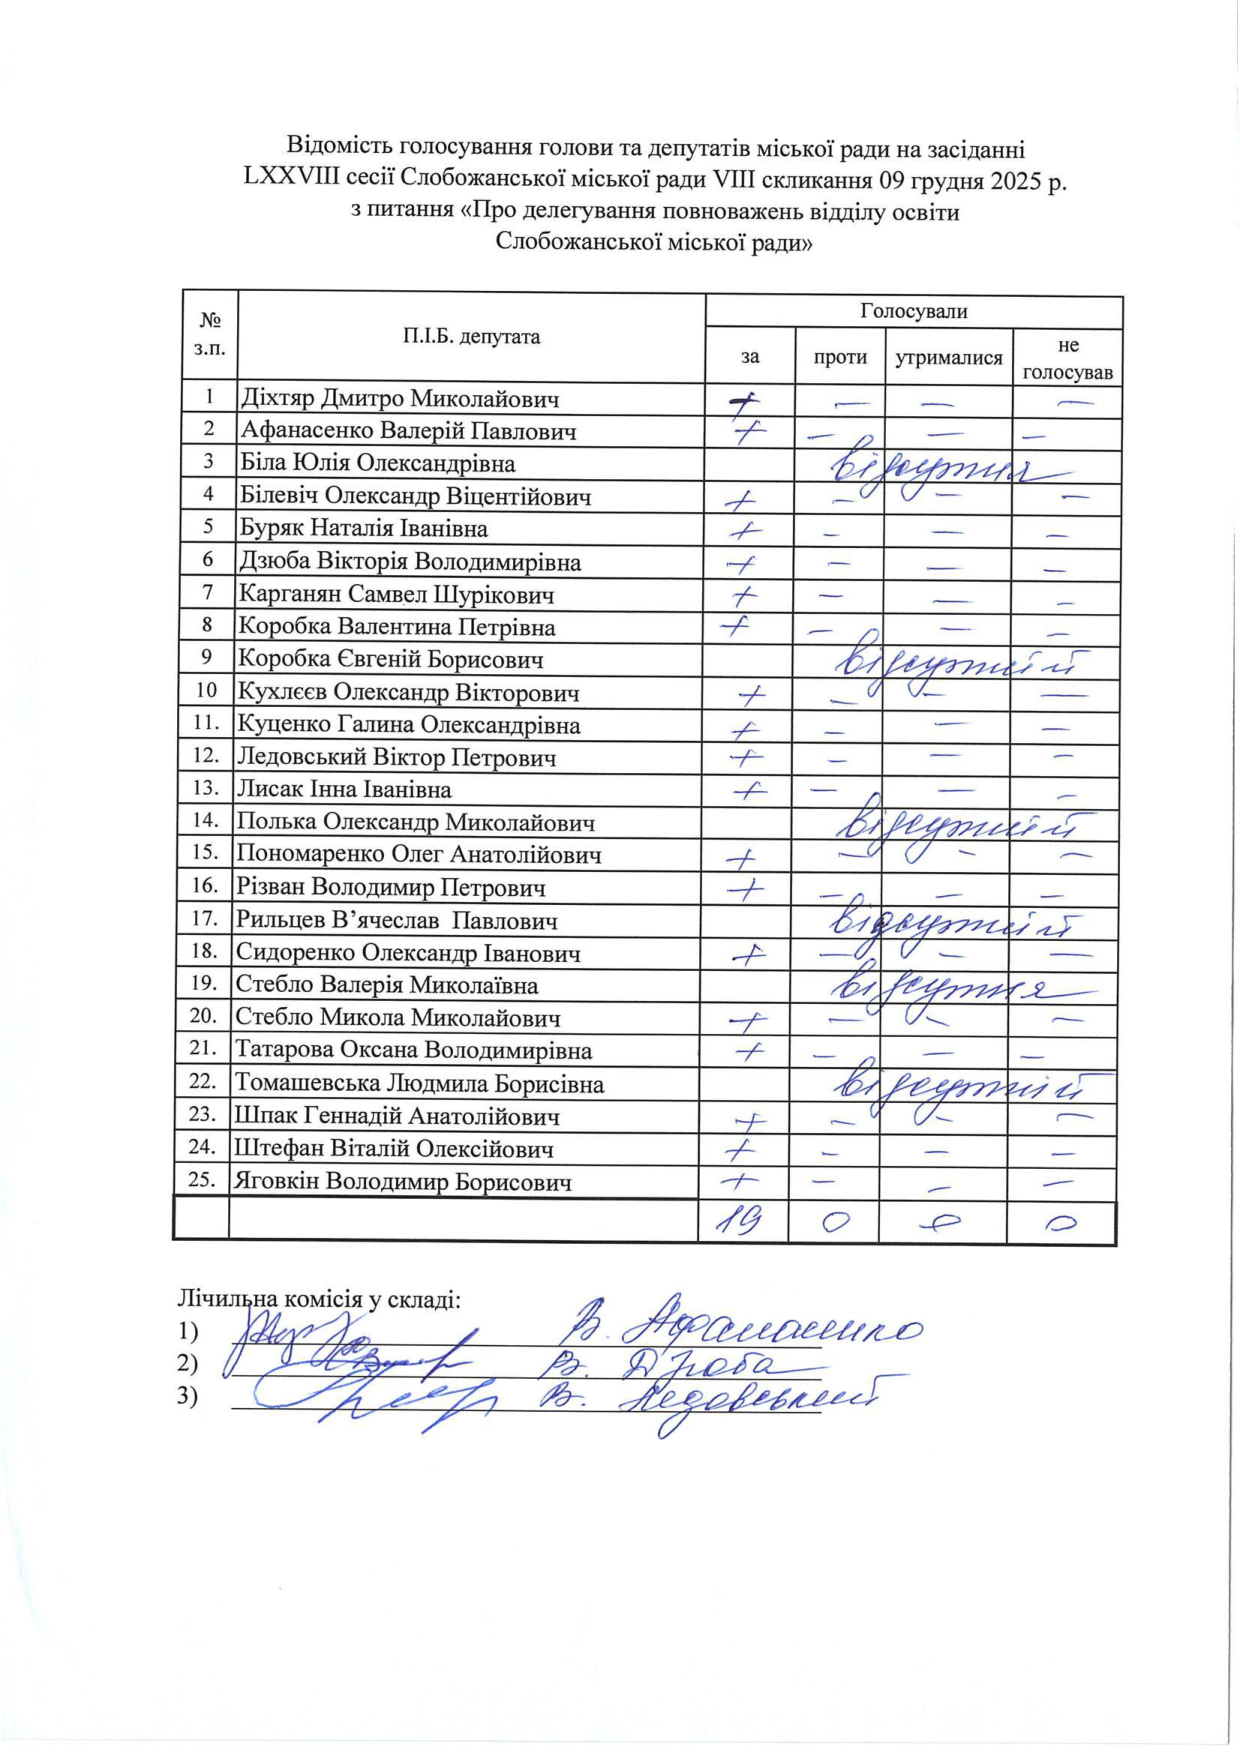 Відомість голосування голови та депутатів міської ради на засіданні
LXXVIII сесії Слобожанської міської ради VIII скликання 09 грудня 2025 р.
з питання «Про делегування повноважень відділу освіти
Слобожанської міської ради»
№ з.п. П.І.Б. депутата Голосували
за проти утрималися не голосував
1 Діхтяр Дмитро Миколайович + — — —
2 Афанасенко Валерій Павлович + — — —
3 Біла Юлія Олександрівна відсутня
4 Білевіч Олександр Віцентійович + — — —
5 Буряк Наталія Іванівна + — — —
6 Дзюба Вікторія Володимирівна + — — —
7 Карганян Самвел Шурікович + — — —
8 Коробка Валентина Петрівна + — — —
9 Коробка Євгеній Борисович відсутній
10 Кухлєєв Олександр Вікторович + — — —
11. Куценко Галина Олександрівна + — — —
12. Ледовський Віктор Петрович + — — —
13. Лисак Інна Іванівна + — — —
14. Полька Олександр Миколайович відсутній
15. Пономаренко Олег Анатолійович + — — —
16. Різван Володимир Петрович + — — —
17. Рильцев В’ячеслав Павлович відсутній
18. Сидоренко Олександр Іванович + — — —
19. Стебло Валерія Миколаївна відсутня
20. Стебло Микола Миколайович + — — —
21. Татарова Оксана Володимирівна + — — —
22. Томашевська Людмила Борисівна відсутній
23. Шпак Геннадій Анатолійович + — — —
24. Штефан Віталій Олексійович + — — —
25. Яговкін Володимир Борисович + — — —
19 0 0 0
Лічильна комісія у складі:
1) В. Афанасенко
2) В. Дзюба
3) В. Ледовський